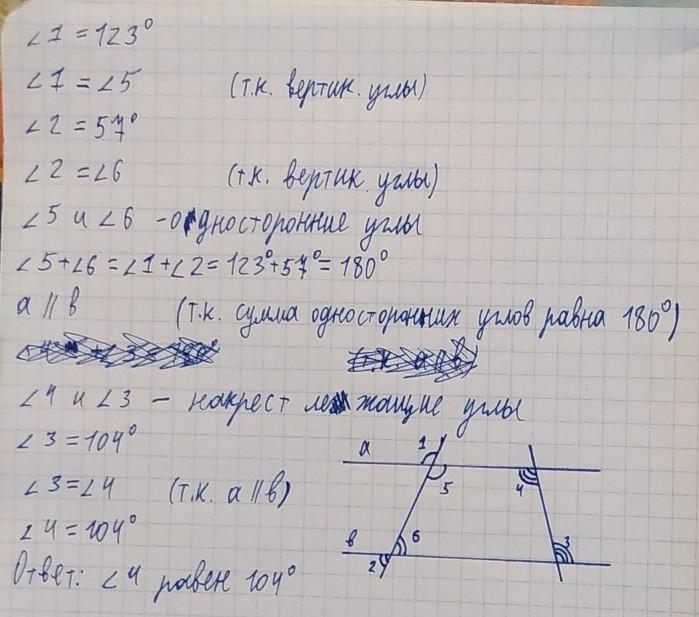 ∠1 = 123°
∠1 = ∠5 (т.к. вертик. углы)
∠2 = 57°
∠2 = ∠6 (т.к. вертик. углы)
∠5 и ∠6 – односторонние углы
∠5+∠6 = ∠1+∠2 = 123°+57° = 180°
a || b (т.к. сумма односторонних углов равна 180°)
∠4 и ∠3 – накрест лежащие углы
∠3 = 104°
∠3 = ∠4 (т.к. a || b)
∠4 = 104°
Ответ: ∠4 равен 104°
a 1
5 4
в 6 3
2